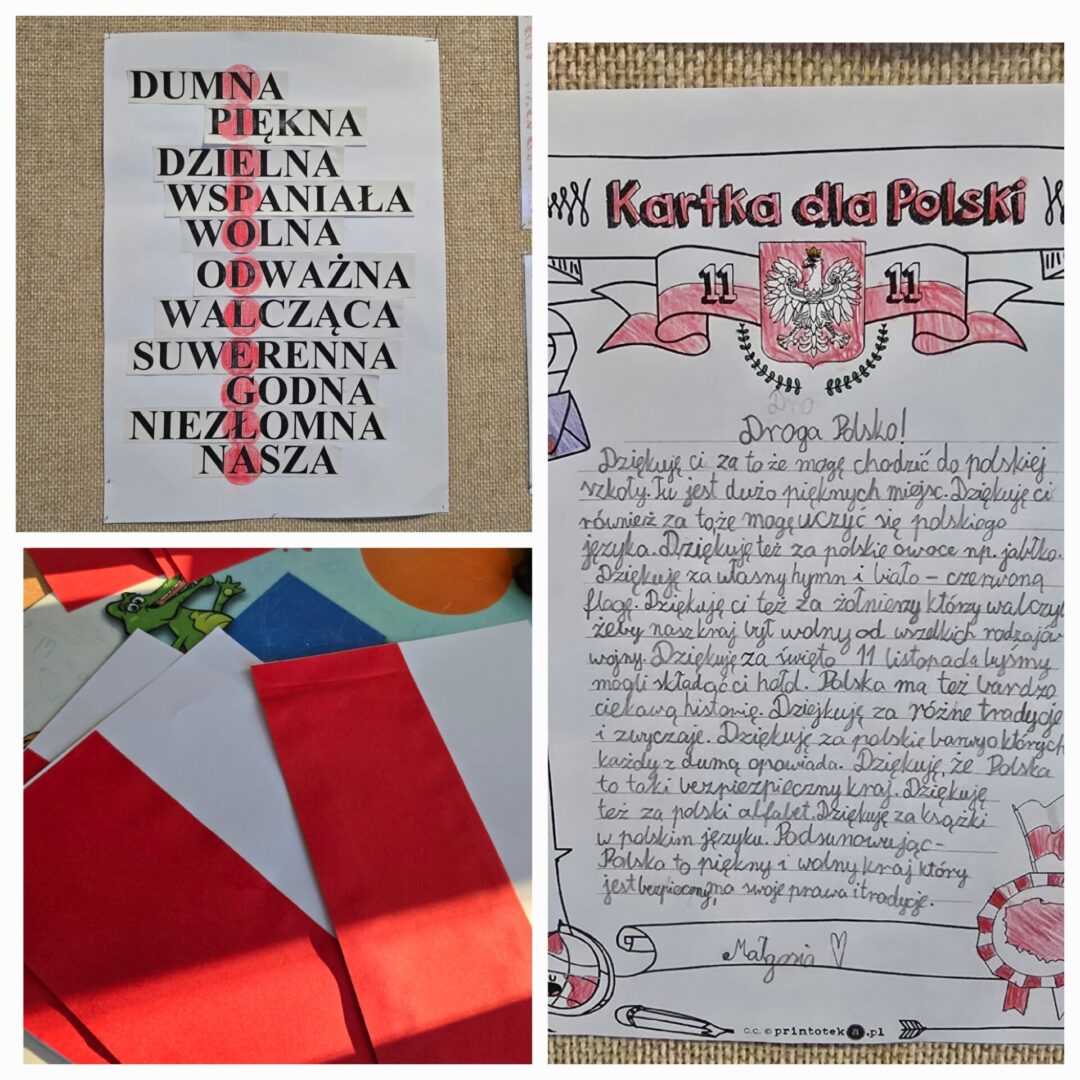 DUMNA
PIĘKNA
DZIELNA
WSPANIAŁA
WOLNA
ODWAŻNA
WALCZĄCA
SUWERENNA
GODNA
NIEZŁOMNA
NASZA
Kartka dla Polski
11 11
Dro
Droga Polsko!
Dziękuję ci za to że mogę chodzić do polskiej
szkoły. Tu jest dużo pięknych miejsc. Dziękuję ci
również za to że mogę uczyć się polskiego
języka. Dziękuję też za polskie owoce np. jabłko.
Dziękuję za własny hymn i biało - czerwoną
flagę. Dziękuję ci też za żołnierzy którzy walczyl
żeby nasz kraj był wolny od wszelkich rodzajów
wojny. Dziękuję za święto 11 listopada byśmy
mogli składać ci hołd. Polska ma też bardzo
ciekawą historię. Dziejkuję za różne tradycje
i zwyczaje. Dziękuję za polskie barwy o których
każdy z dumą opowiada. Dziękuję, że Polska
to taki bezpiezpieczny kraj. Dziękuję
też za polski alfabet. Dziękuję za książki
w polskim języku. Podsunowując-
Polska to piękny i wolny kraj który
jest bezpieczny, ma swoje prawa i tradycje.
Małgosia
c.c. © printoteka.pl